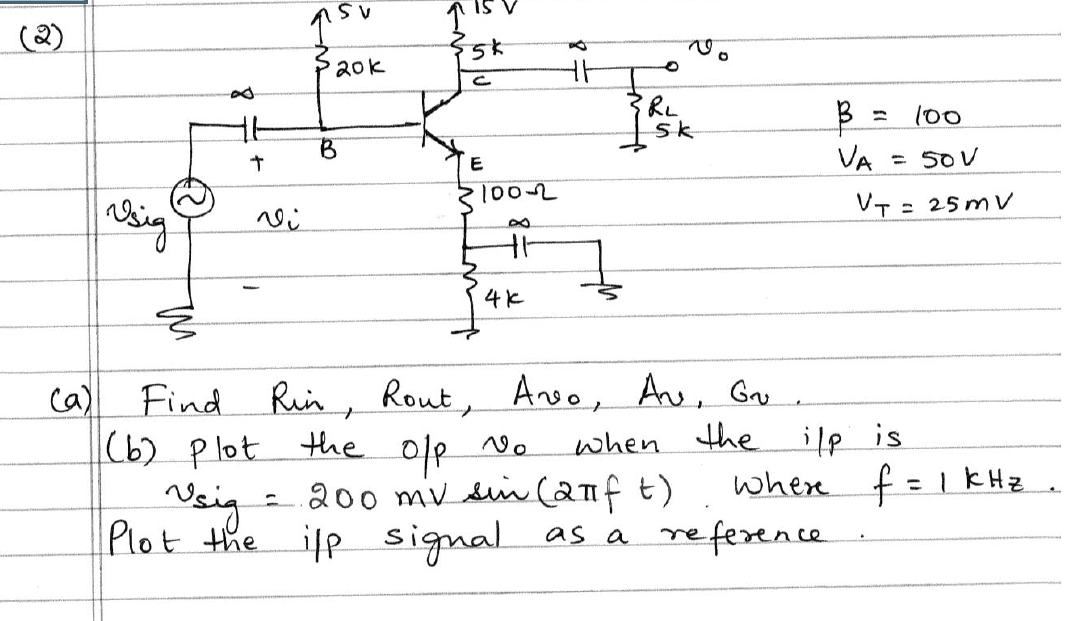 (2)
5 V
15 V
20K
5K
∞
vo
C
RL
5K
∞
B
+
E
vsig
vi
100Ω
∞
-
4K
β = 100
VA = 50V
VT = 25mV
(a) Find Rin, Rout, Avo, Av, Gv.
(b) plot the o/p vo when the i/p is
vsig = 200 mV sin(2πft) where f = 1 kHz.
Plot the i/p signal as a reference.